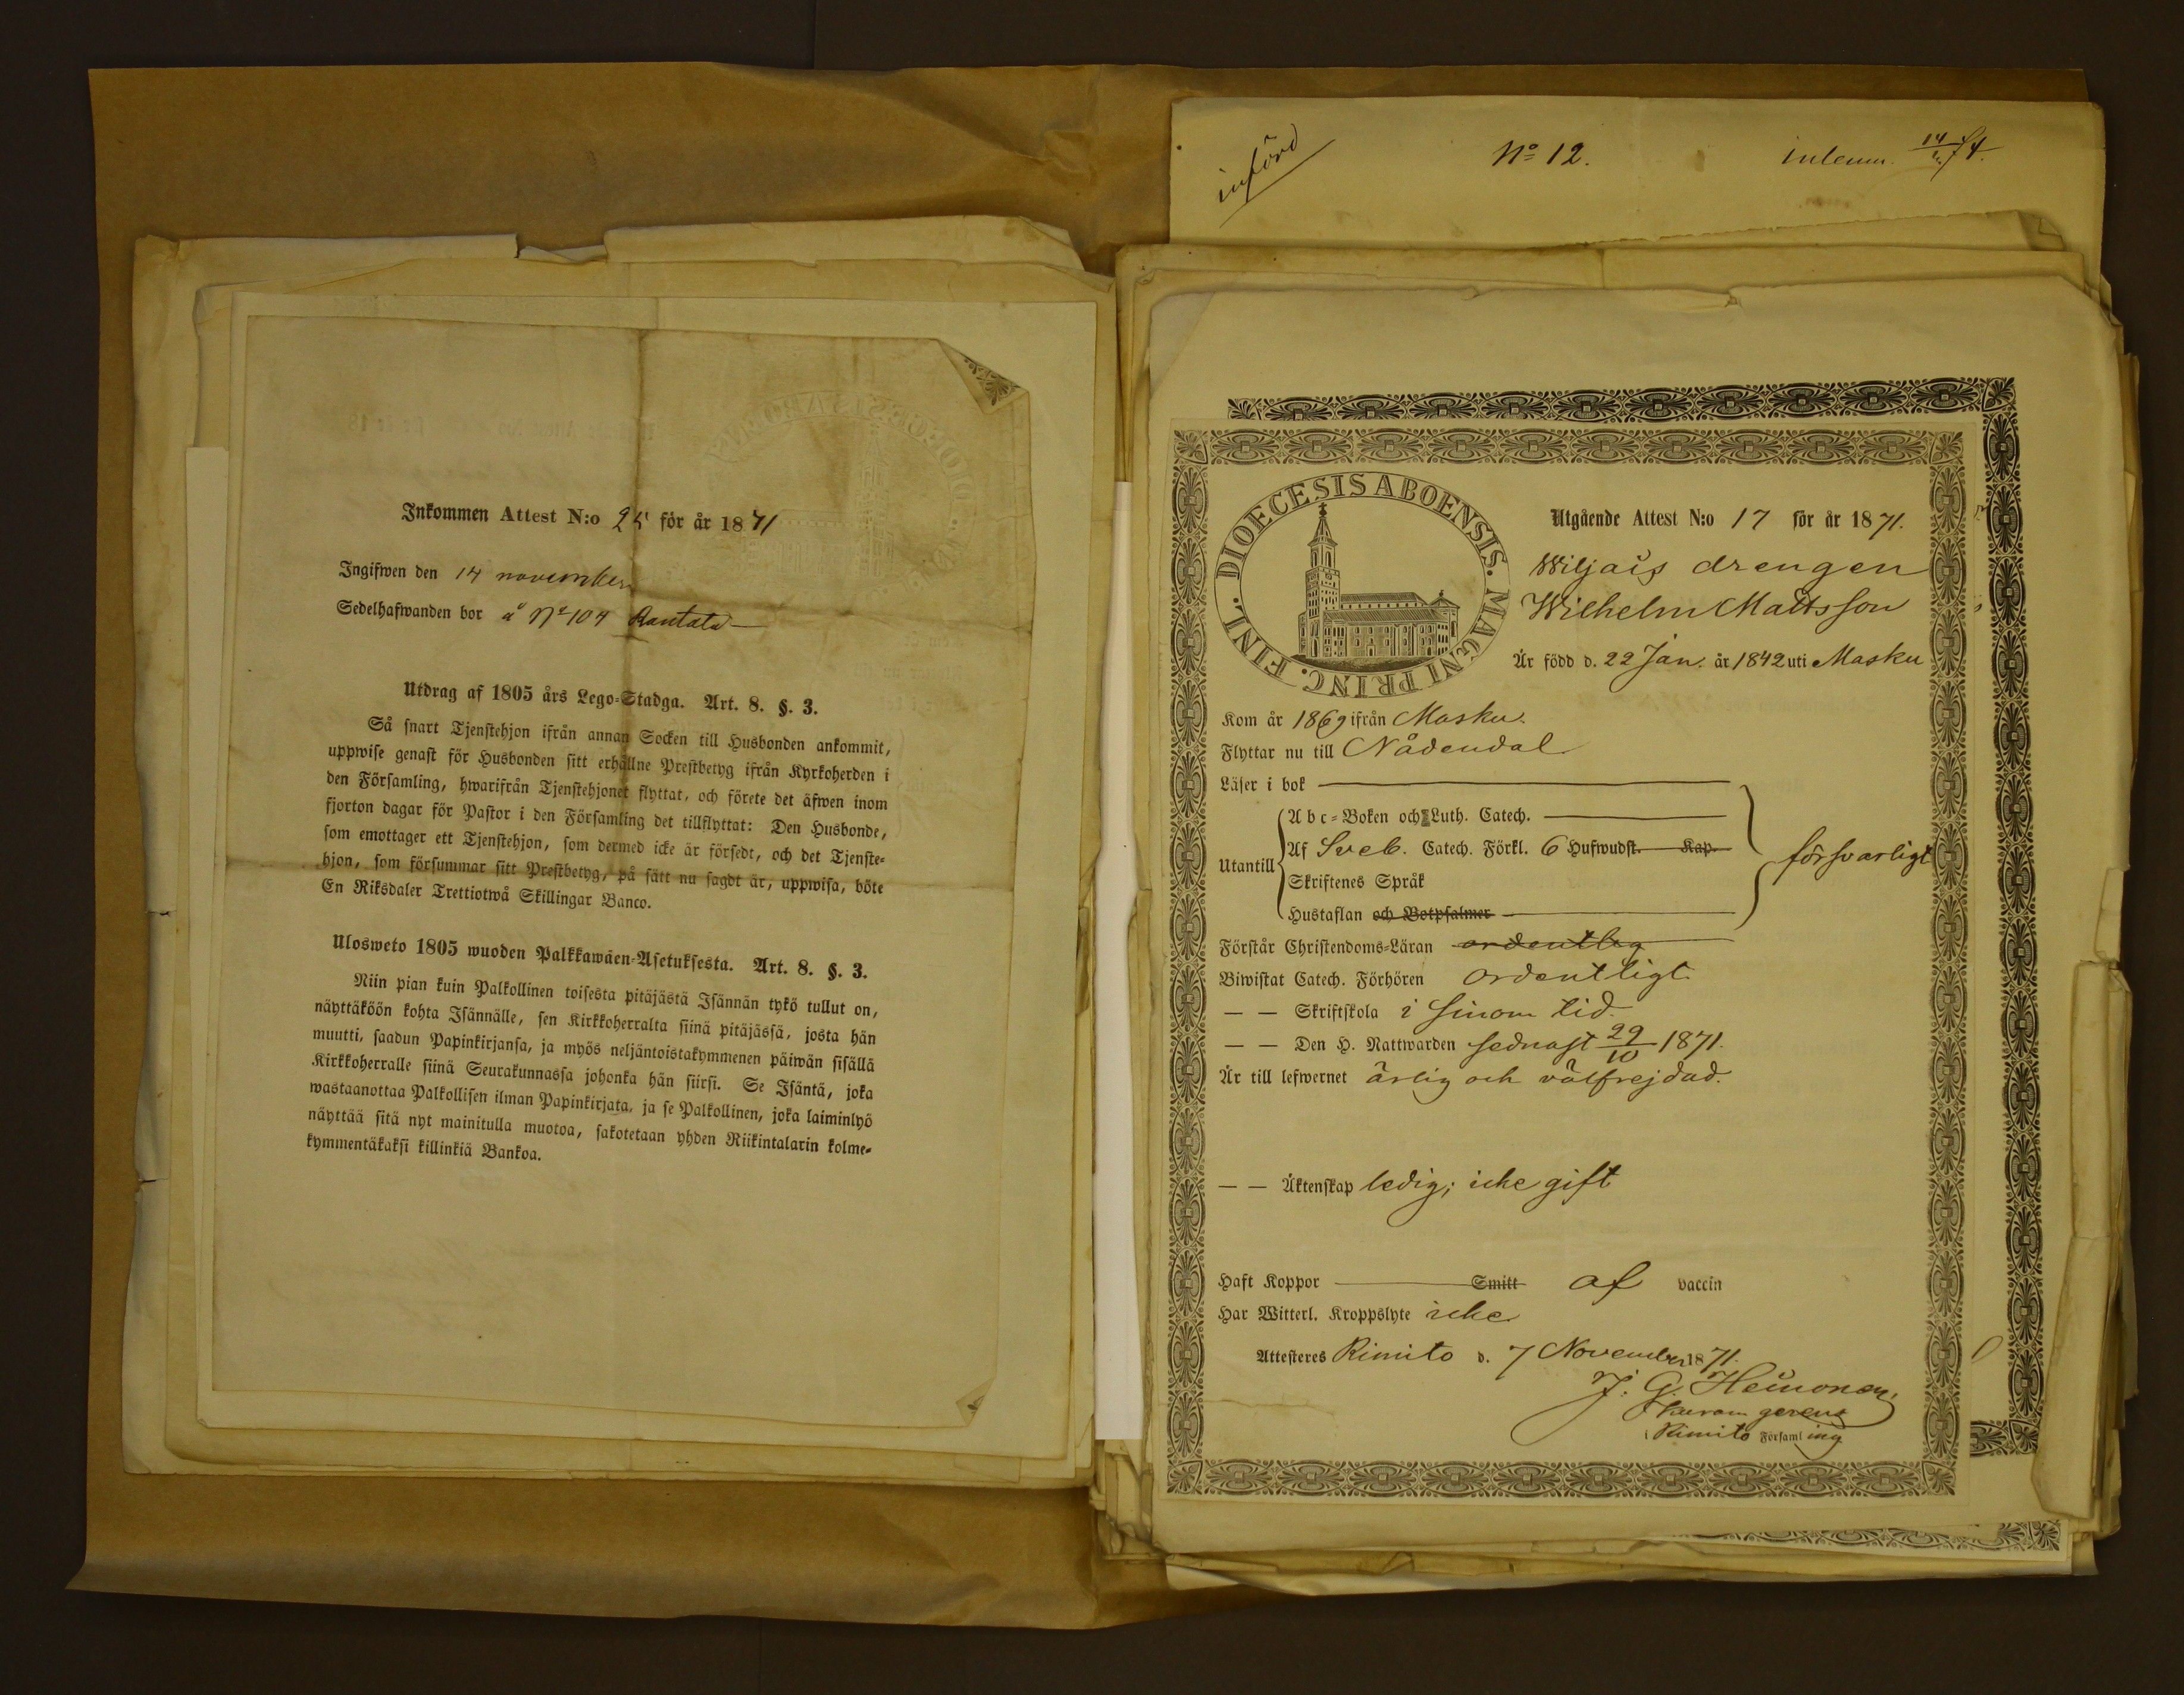 Inkommen Attest N:o 25 för år 1871
Ingifwen den 14 november
Sedelhafwanden bor å No 104 Rantala
Utdrag af 1805 års Lego-Stadga. Art. 8. §. 3.
Så snart Tjenstehjon ifrån annan Socken till Husbonden ankommit,
uppwise genast för Husbonden sitt erhållne Prestbetyg ifrån Kyrkoherden i
den Församling, hwarifrån Tjenstehjonet flyttat, och förete det äfwen inom
fjorton dagar för Pastor i den Församling det tillflyttat: Den Husbonde,
som emottager ett Tjenstehjon, som dermed icke är försedt, och det Tjenste-
hjon, som försummar sitt Prestbetyg, på sätt nu sagdt är, uppwisa, böte
En Riksdaler Trettiotwå Skillingar Banco.
Ulosweto 1805 wuoden Palkkawäen-Asetuksesta. Art. 8. §. 3.
Niin pian kuin Palkollinen toisesta pitäjästä Isännän tykö tullut on,
näyttäköön kohta Isännälle, sen Kirkkoherralta siinä pitäjässä, josta hän
muutti, saadun Papinkirjansa, ja myös neljäntoistakymmenen päiwän sisällä
Kirkkoherralle siinä Seurakunnassa johonka hän siirsi. Se Isäntä, joka
wastaanottaa Palkollisen ilman Papinkirjata, ja se Palkollinen, joka laiminlyö
näyttää sitä nyt mainitulla muotoa, sakotetaan yhden Riikintalarin kolme-
kymmentäkaksi killinkiä Bankoa.
införd
No 12.
inlemn. 14
DIOECESIS ABOENSIS. MAGNI PRINC. FINL.
Utgående Attest N:o 17 för år 1871.
Wiljais drengen
Wilhelm Mattsson
Är född d. 22 Jan. år 1842 uti Masku
Kom år 1869 ifrån Masku.
Flyttar nu till Nådendal
Läser i bok
Utantill
Abc-Boken och Luth. Catech.
Af Sveb. Catech. Förkl. 6 Hufwudst. Kap.
försvarligt
Skriftenes Språk
Hustaflan och Botpsalmer
Förstår Christendoms-Läran ordentlig
Biwistat Catech. Förhören ordentligt
— — Skriftskola i sinom tid.
— — Den H. Nattwarden sednast 29/10 1871.
Är till lefwernet ärlig och välfrejdad.
— — Äktenskap ledig; icke gift
Haft Koppor Smitt af vaccin
Har Witterl. Kroppslyte icke
Attesteres Rimito d. 7 November 1871.
J. G. Heinonen,
curam gerens
i Rimito Församling